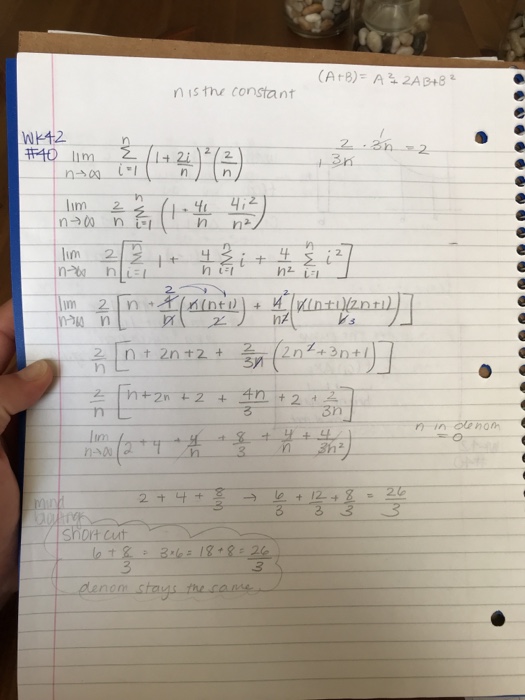 (A+B) = A² + 2AB+B²
n is the constant
WK42
#40 lim n→∞ n Σ i=1 (1 + 2i/n)² (2/n)
2/3n · 1 3n = 2
lim n→∞ 2/n n Σ i=1 (1 + 4i/n 4i²/n²)
lim n→∞ 2/n [n Σ i=1 1 + 4/n n Σ i=1 i + 4/n² n Σ i=1 i²]
lim n→∞ 2/n [n + 4/n (n(n+1)/2) + 4/n² (n(n+1)(2n+1))/6]
2/n [n + 2n + 2 + 2/3n (2n² + 3n + 1)]
2/n [n + 2n + 2 + 4n/3 + 2 + 2/3n]
n in denom = 0
lim n→∞ (2 + 4 + 4/n + 8/3 + 4/n + 4/3n²)
2 + 4 + 8/3 → 6/3 + 12/3 + 8/3 = 26/3
mind
short cut
6 + 8/3 = 3·6 = 18 + 8 = 26/3
denom stays the same